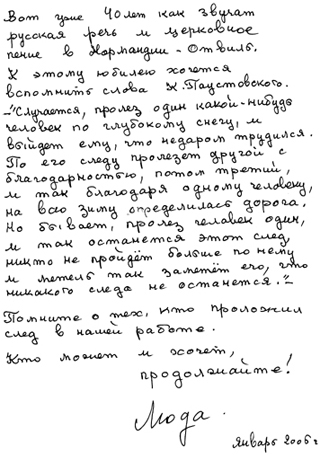 Вот уже 40 лет как звучат
русская речь и церковное
пение в Нормандии - Отвиль.
К этому юбилею хочется
вспомнить слова К. Паустовского.
-"Случается, пролез один какой-нибудь
человек по глубокому снегу, и
выйдет ему, что недаром трудился.
По его следу пролезет другой с
благодарностью, потом третий,
и так благодаря одному человеку,
на всю зиму определилась дорога.
Но бывает, пролез человек один,
и так останется этот след,
никто не пройдёт больше по нему
и метель так заметёт его, что
никакого следа не останется."-
Помните о тех, кто проложил
след в нашей работе.
Кто может и хочет,
продолжайте!
Люда.
Январь 2006 г